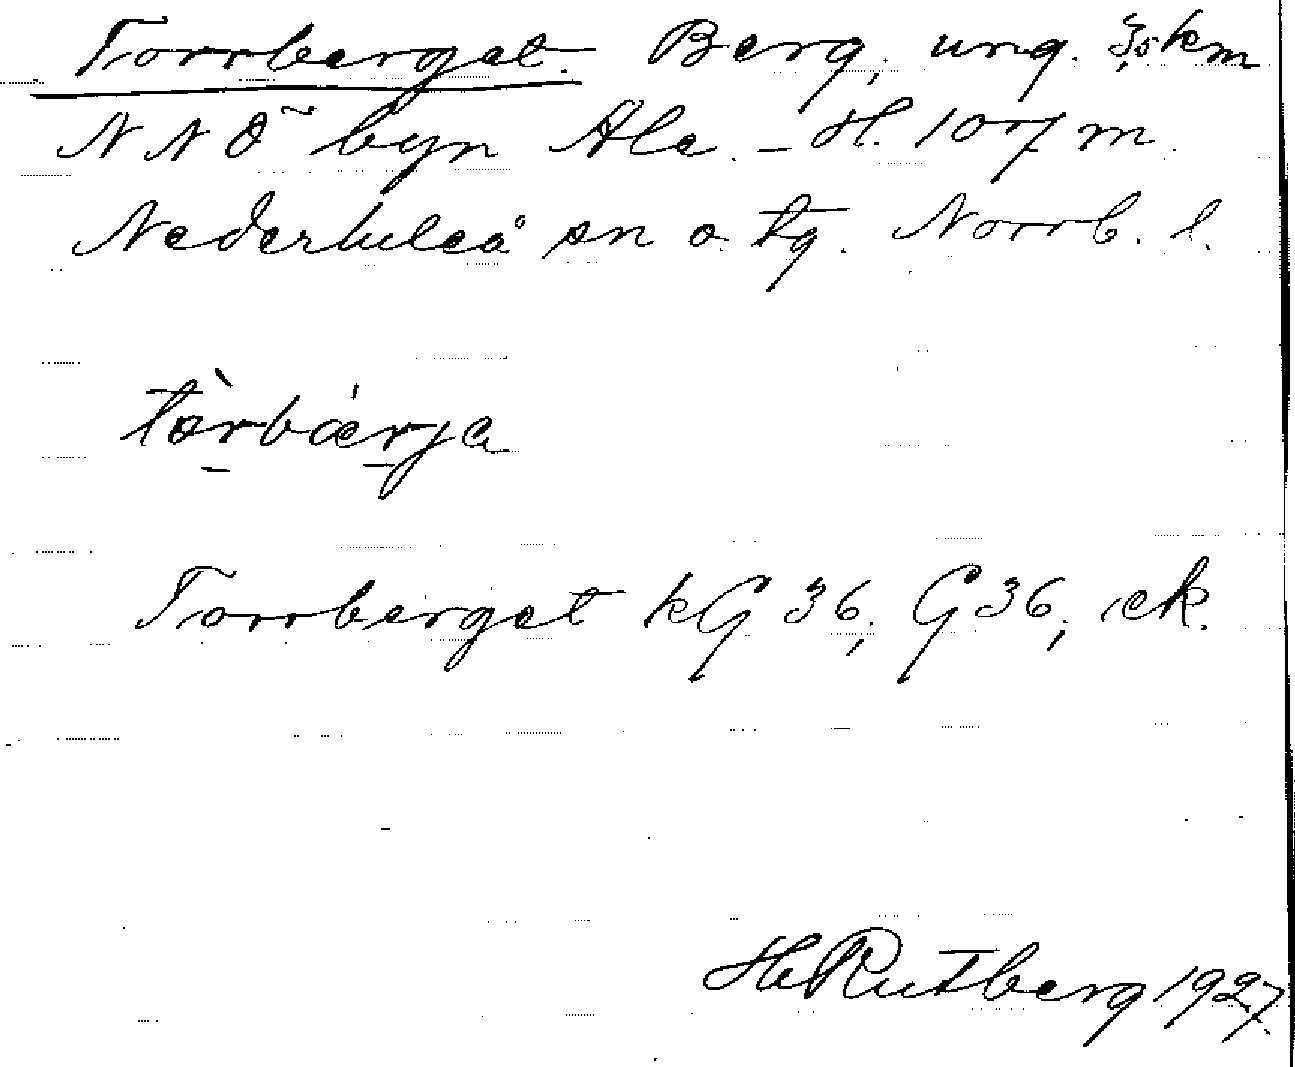 Torrberget. Berg, ung. 3,5 km
NNÖ byn Ale. – H. 107 m.
Nederluleå sn o. tg. Norrb. l.
tòrbǽrja
Torrberget kG 36, G 36, ek.
HRutberg 1927.